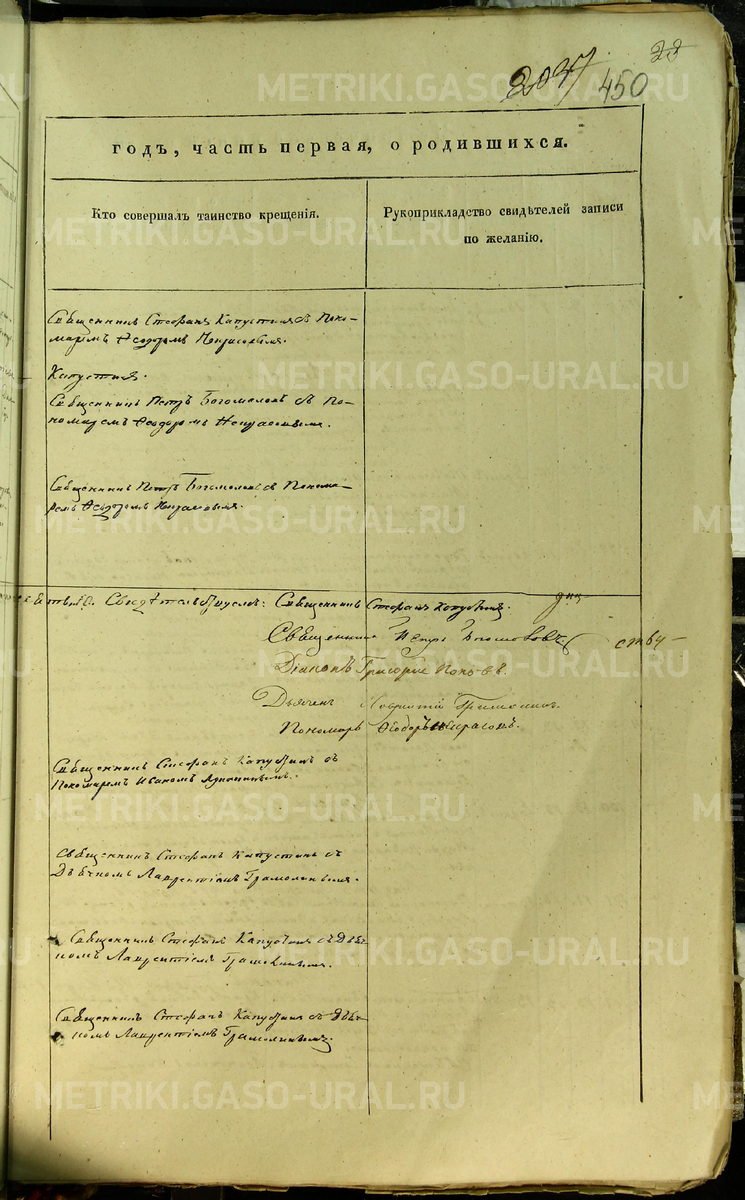 23
2037 450
годъ, часть первая, о родившихся.
Кто совершалъ таинство крещенія.
Рукоприкладство свидѣтелей записи
по желанію.
Священникъ Стефанъ Капустинъ съ Поно-
маремъ Ѳеодоромъ Некрасовымъ.
Капустинъ.
Священникъ Петръ Богомоловъ съ По-
номаремъ Ѳеодоромъ Некрасовымъ.
Священникъ Петръ Богомоловъ съ Понома-
ремъ Ѳеодоромъ Некрасовымъ.
Священникъ Стефанъ Капустинъ.
Священникъ Петръ Богомоловъ
Діаконъ Григорій Поповъ.
Дьячекъ Лаврентій
Пономарь Ѳеодоръ Некрасовъ.
Священникъ Стефанъ Капустинъ съ
Пономаремъ Иваномъ
Священникъ Стефанъ Капустинъ съ
Дьячкомъ Лаврентіемъ Грамолинымъ.
Священникъ Стефанъ Капустинъ съ Дьяч-
комъ Лаврентіемъ Грамолинымъ.
Священникъ Стефанъ Капустинъ съ Дьяч-
комъ Лаврентіемъ Грамолинымъ.
METRIKI.GASO-URAL.RU